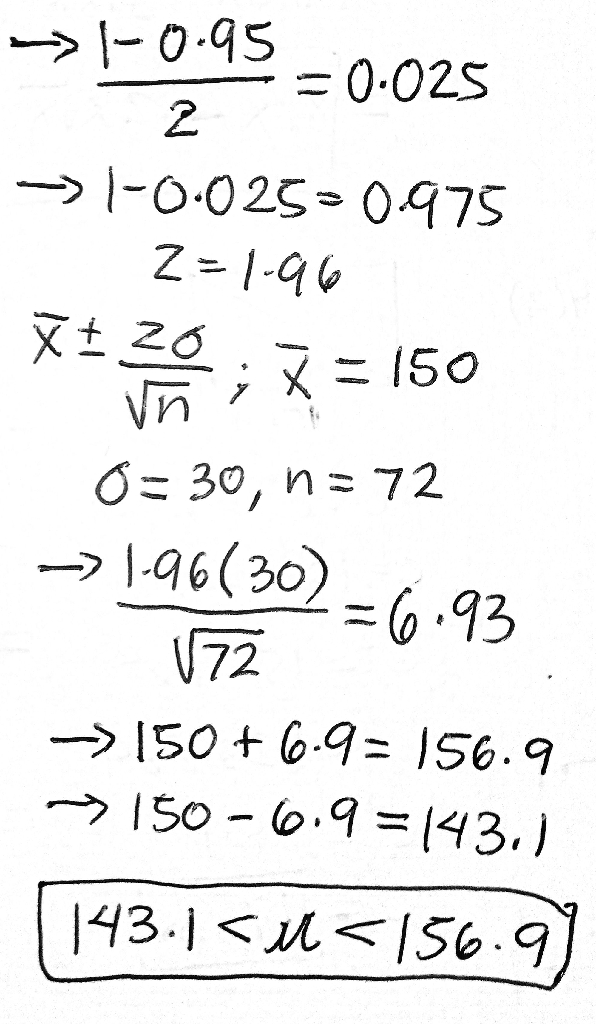 → 1-0.95/2 = 0.025
→ 1-0.025=0.975
z=1.96
x̄ ± zσ/√n ; x̄ = 150
σ=30, n=72
→ 1.96(30)/√72 = 6.93
→ 150+6.9= 156.9
→ 150-6.9=143.1
143.1<μ<156.9